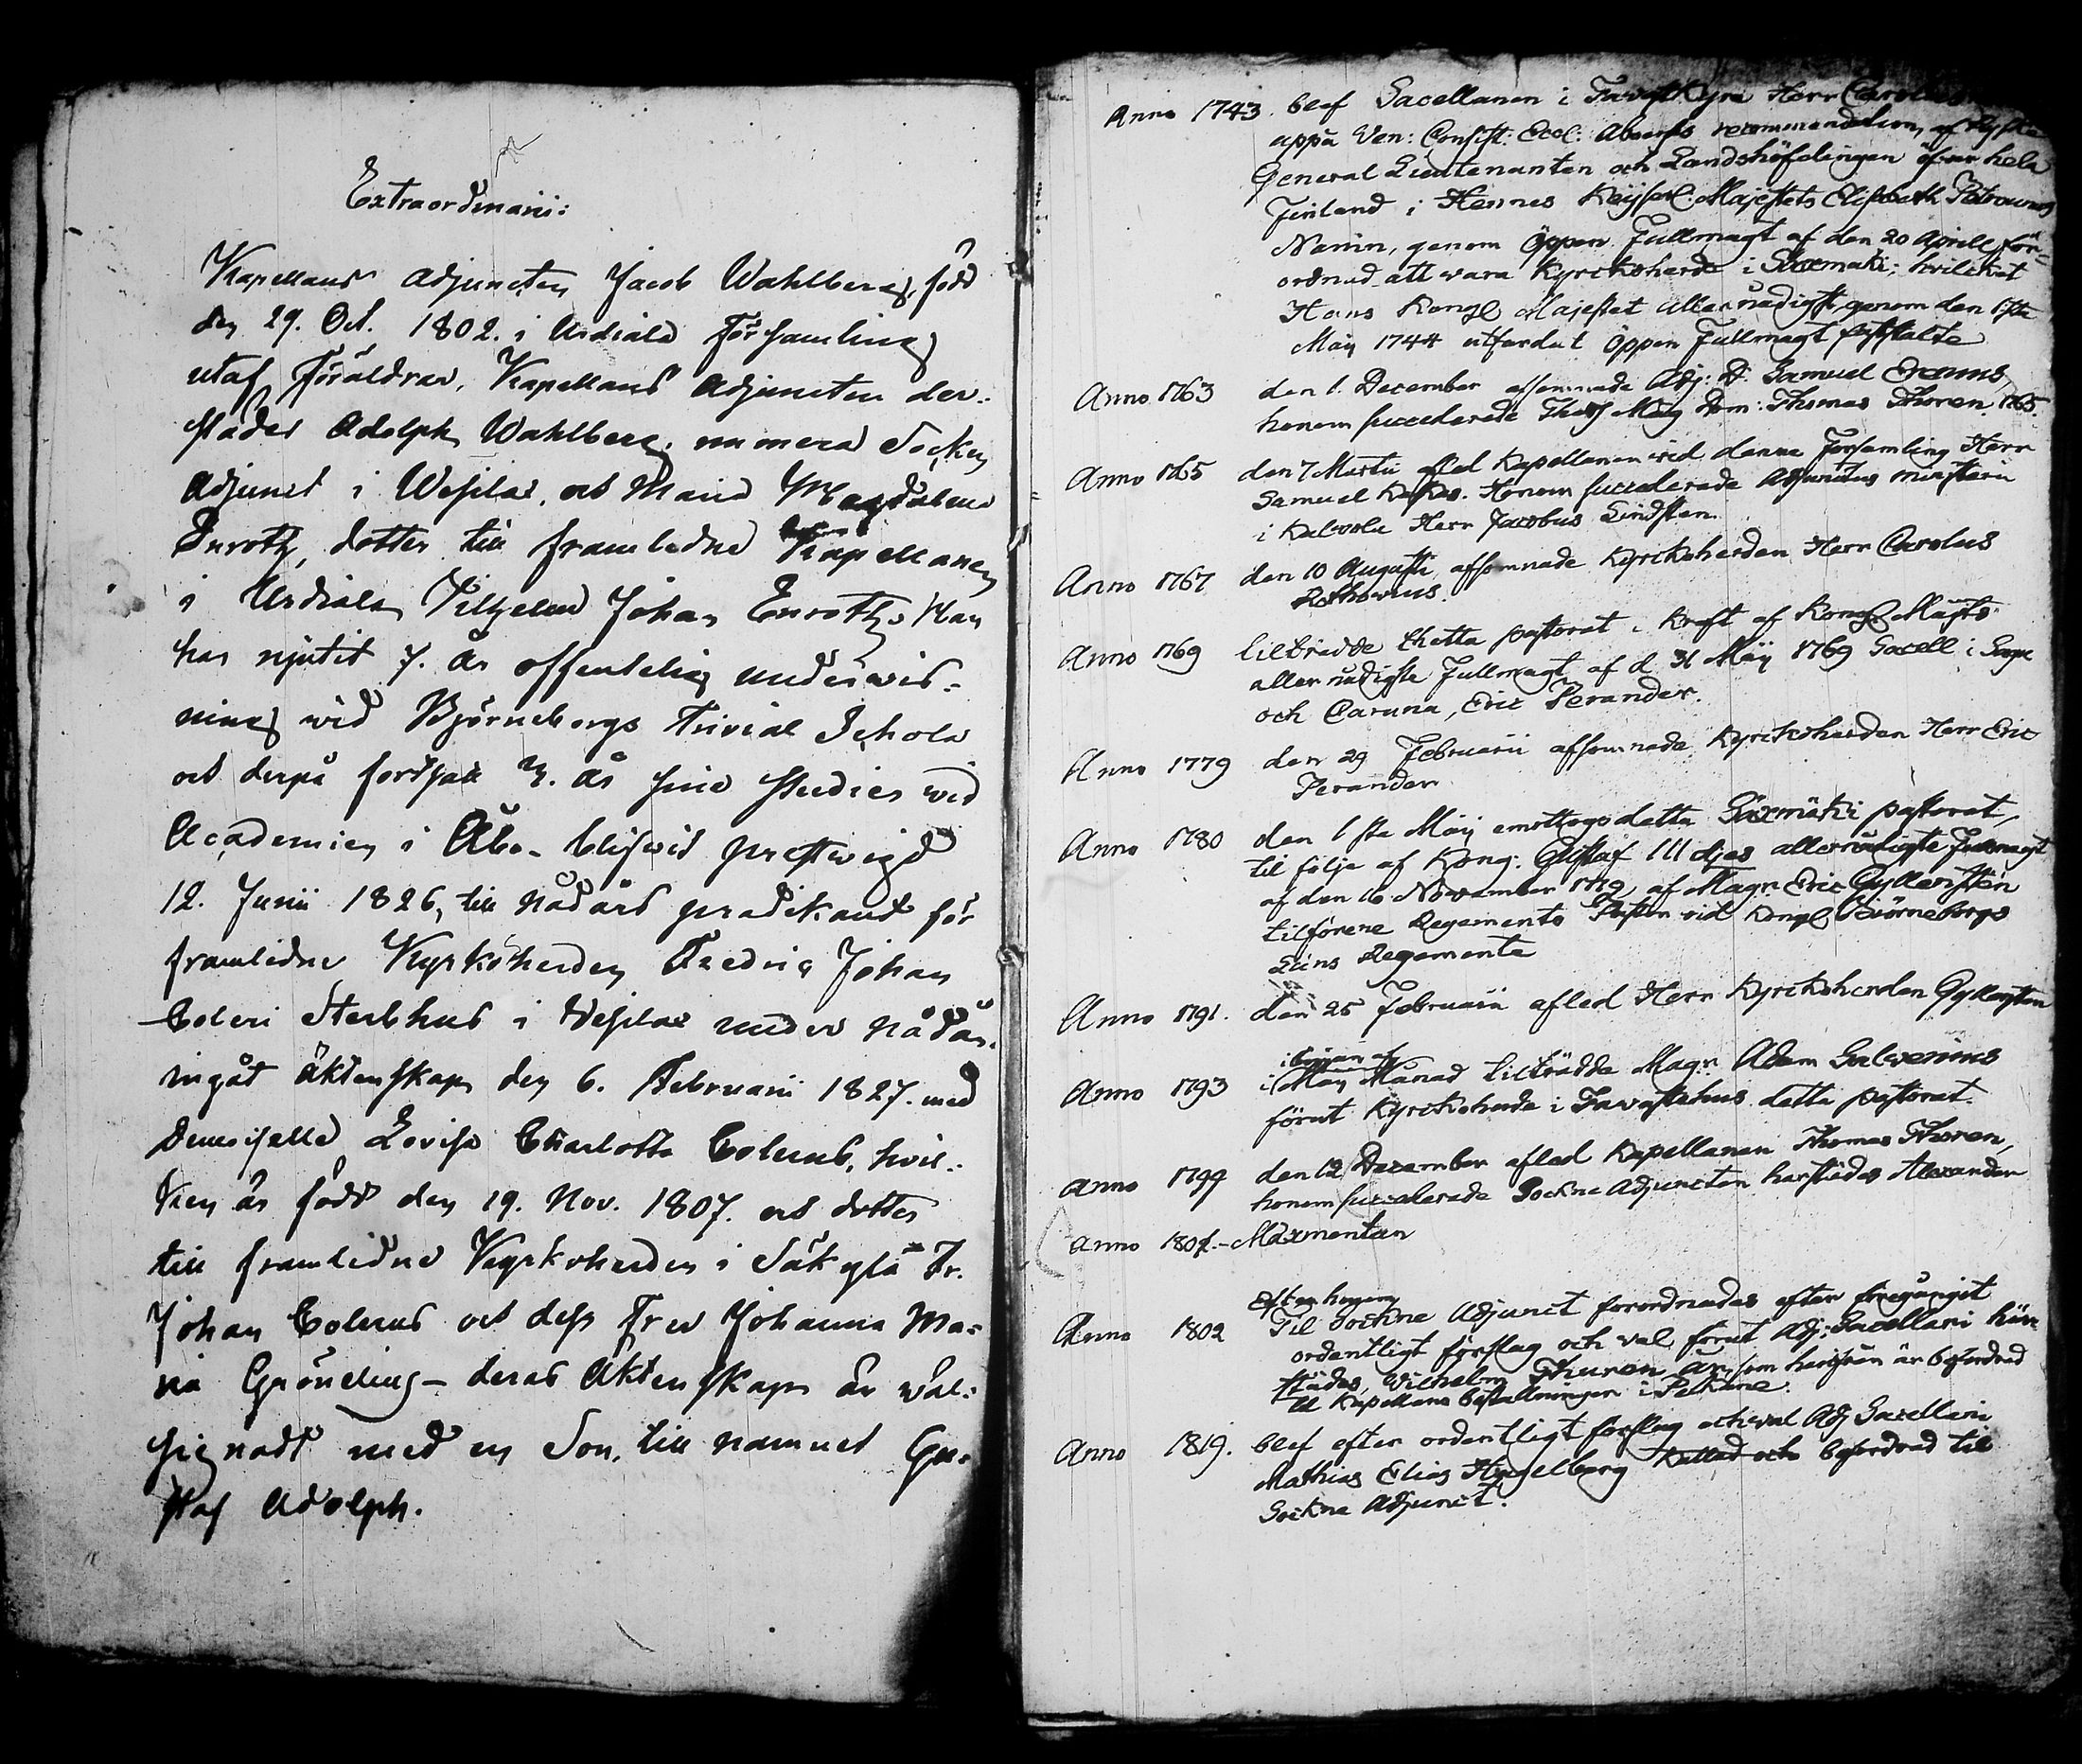 Extraordinarii:
Kapellans Adjuncten Jacob Wahlberg, född
den 29. Oct. 1802. i Urdiala Församling
utaf Föräldrar, Kapellans Adjuncten der-
städes Adolph Wahlberg, numera Socken
Adjunct i Wesilax, och Maria Magdalena
Enroth, dotter till framledne Kapellanen
i Urdiala Johan Enroth. Han
har njutit 7. år offentelig underwis-
ning wid Björneborgs Trivial Schola
och derpå fortsatt 3. år sine studier wid
Academien i Åbo. blifwit prestwigd
12. Junii 1826, till nådårs predikant för
framledne Kyrkoherden Fredric Johan
Coleri Sterbhus i Wesilax under nådår.
ingåt äktenskap den 6. Februarii 1827. med
Demoiselle Lovisa Charlotta Colerus, hvil-
ken är född den 19. Nov. 1807. och dotter
till framledne Kyrkoherden i Säkylä Fr.
Johan Colerus och dess Fru Johanna Ma-
ria Gröneling - deras Äktenskap är wäl-
signadt med en Son, till namnet Gu-
staf Adolph.
Anno 1743. blef Sacellanen i Tavastkyro Herr Carolus
uppå Ven: Consist: Eccl: Aboens recommendation, af Ryska
General Lieutenanten och Landshöfdingen öfwer hela
Finland i Hennes Keyserl. Majestets Elisabeth Petrownas
Namn, genom Öppen Fullmagt af den 20 Aprill för-
ordnad att wara Kyrckoherde i Säxmäki; hvilcket
Hans Kongl Majestet allernådigst genom den 1ste
Maij 1744 utfärdat Öppen Fullmagt fastställte
Anno 1763 den 1. December afsomnade Adj: D. Samuel
honom succederade Mag Dom: Thomas Thoren 1765.
Anno 1765 den 7 Martii afled Kapellanen wid denna Församling Herr
Samuel. Honom succederade Adjunctus ministerii
i Kalvola Herr Jacobus Lindsten.
Anno 1767 den 10 Augusti afsomnade Kyrckoherden Herr Carolus
Rothovius.
Anno 1769 tilträdde thetta pastorat i kraft af Kongl. Maj:ts
allernådigste Fullmagt af d. 31 Maij 1769 Sacell: i Sagu
och Caruna, Eric Perander.
Anno 1779 den 29 Februarii afsomnade Kyrckoherden Herr Eric
Perander
Anno 1780 den 1ste Maij emottogs detta Säxmäki pastorat,
til följe af Kong: Gustaf III djes allernådigste Fullmagt
af den 16 November 1779, af Magr. Eric Gyllersten
tilförene Regements Pastor vid Kongl. Biörneborgs
Läns Regemente
Anno 1791. den 25 Februarii afled Herr Kyrckoherden Gyllersten
i början af
Anno 1793 i Maij Månad tilträdde Magr. Adam Salvenius
förut Kyrckoherde i Tavastehus detta pastorat.
Anno 1799 den 12 December afled Kapellanen Thomas Thoren,
honom succederade Sockne Adjuncten härstädes Alexander
Anno 1801. - Maxmontan
Efter honom
Anno 1802 Til Sockne Adjunct förordnades efter föregångit
ordentligt förslag och val förut Adj: Sacellani här
städes, Wilhelm Thuren, som härifrån är befordrad
til Kapellans beställningen i Pelkäne.
Anno 1819. blef efter ordentligt förslag och val Adj Sacellani
Mathias Elias Hagelberg kallad och befordrad til
Sockne Adjunct.